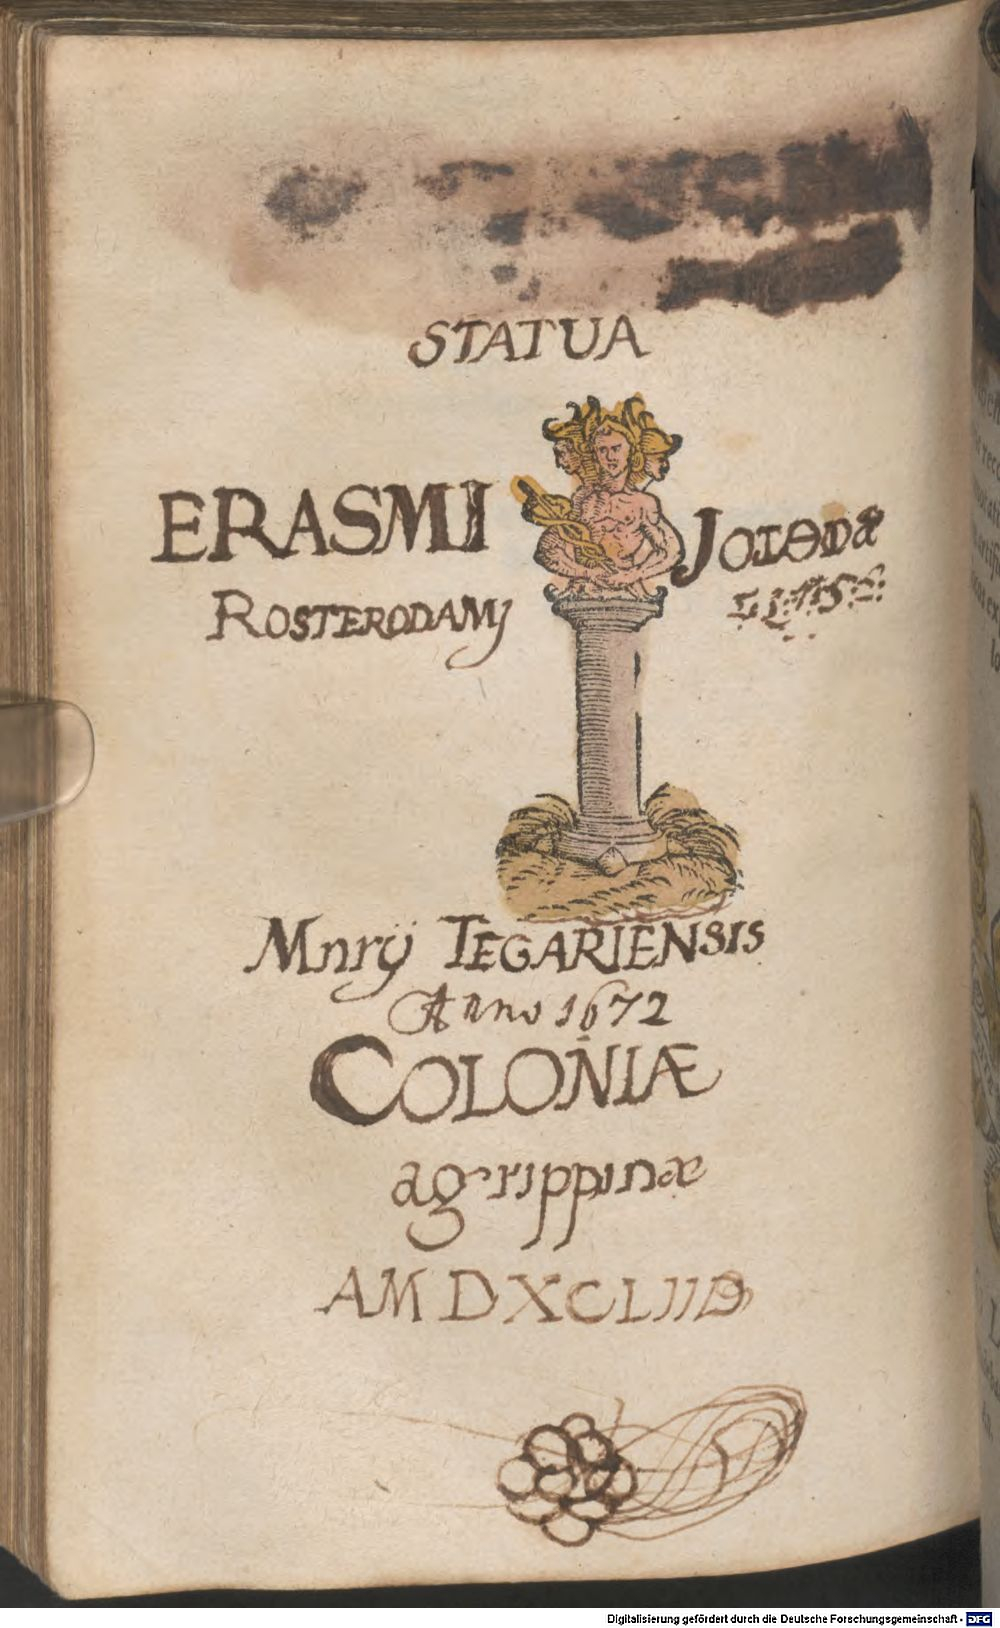 STATUA
ERASMI
ROSTERODAMJ
Mnrÿ TEGARIENSIS
Anno 1672
COLONIÆ
agrippinæ
AM DXCLIID
Digitalisierung gefördert durch die Deutsche Forschungsgemeinschaft - DFG